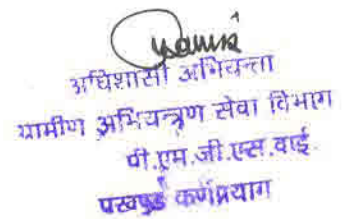 अधिशासी अभियन्ता
ग्रामीण अभियन्त्रण सेवा विभाग
पी.एम.जी.एस.वाई.
कर्णप्रयाग